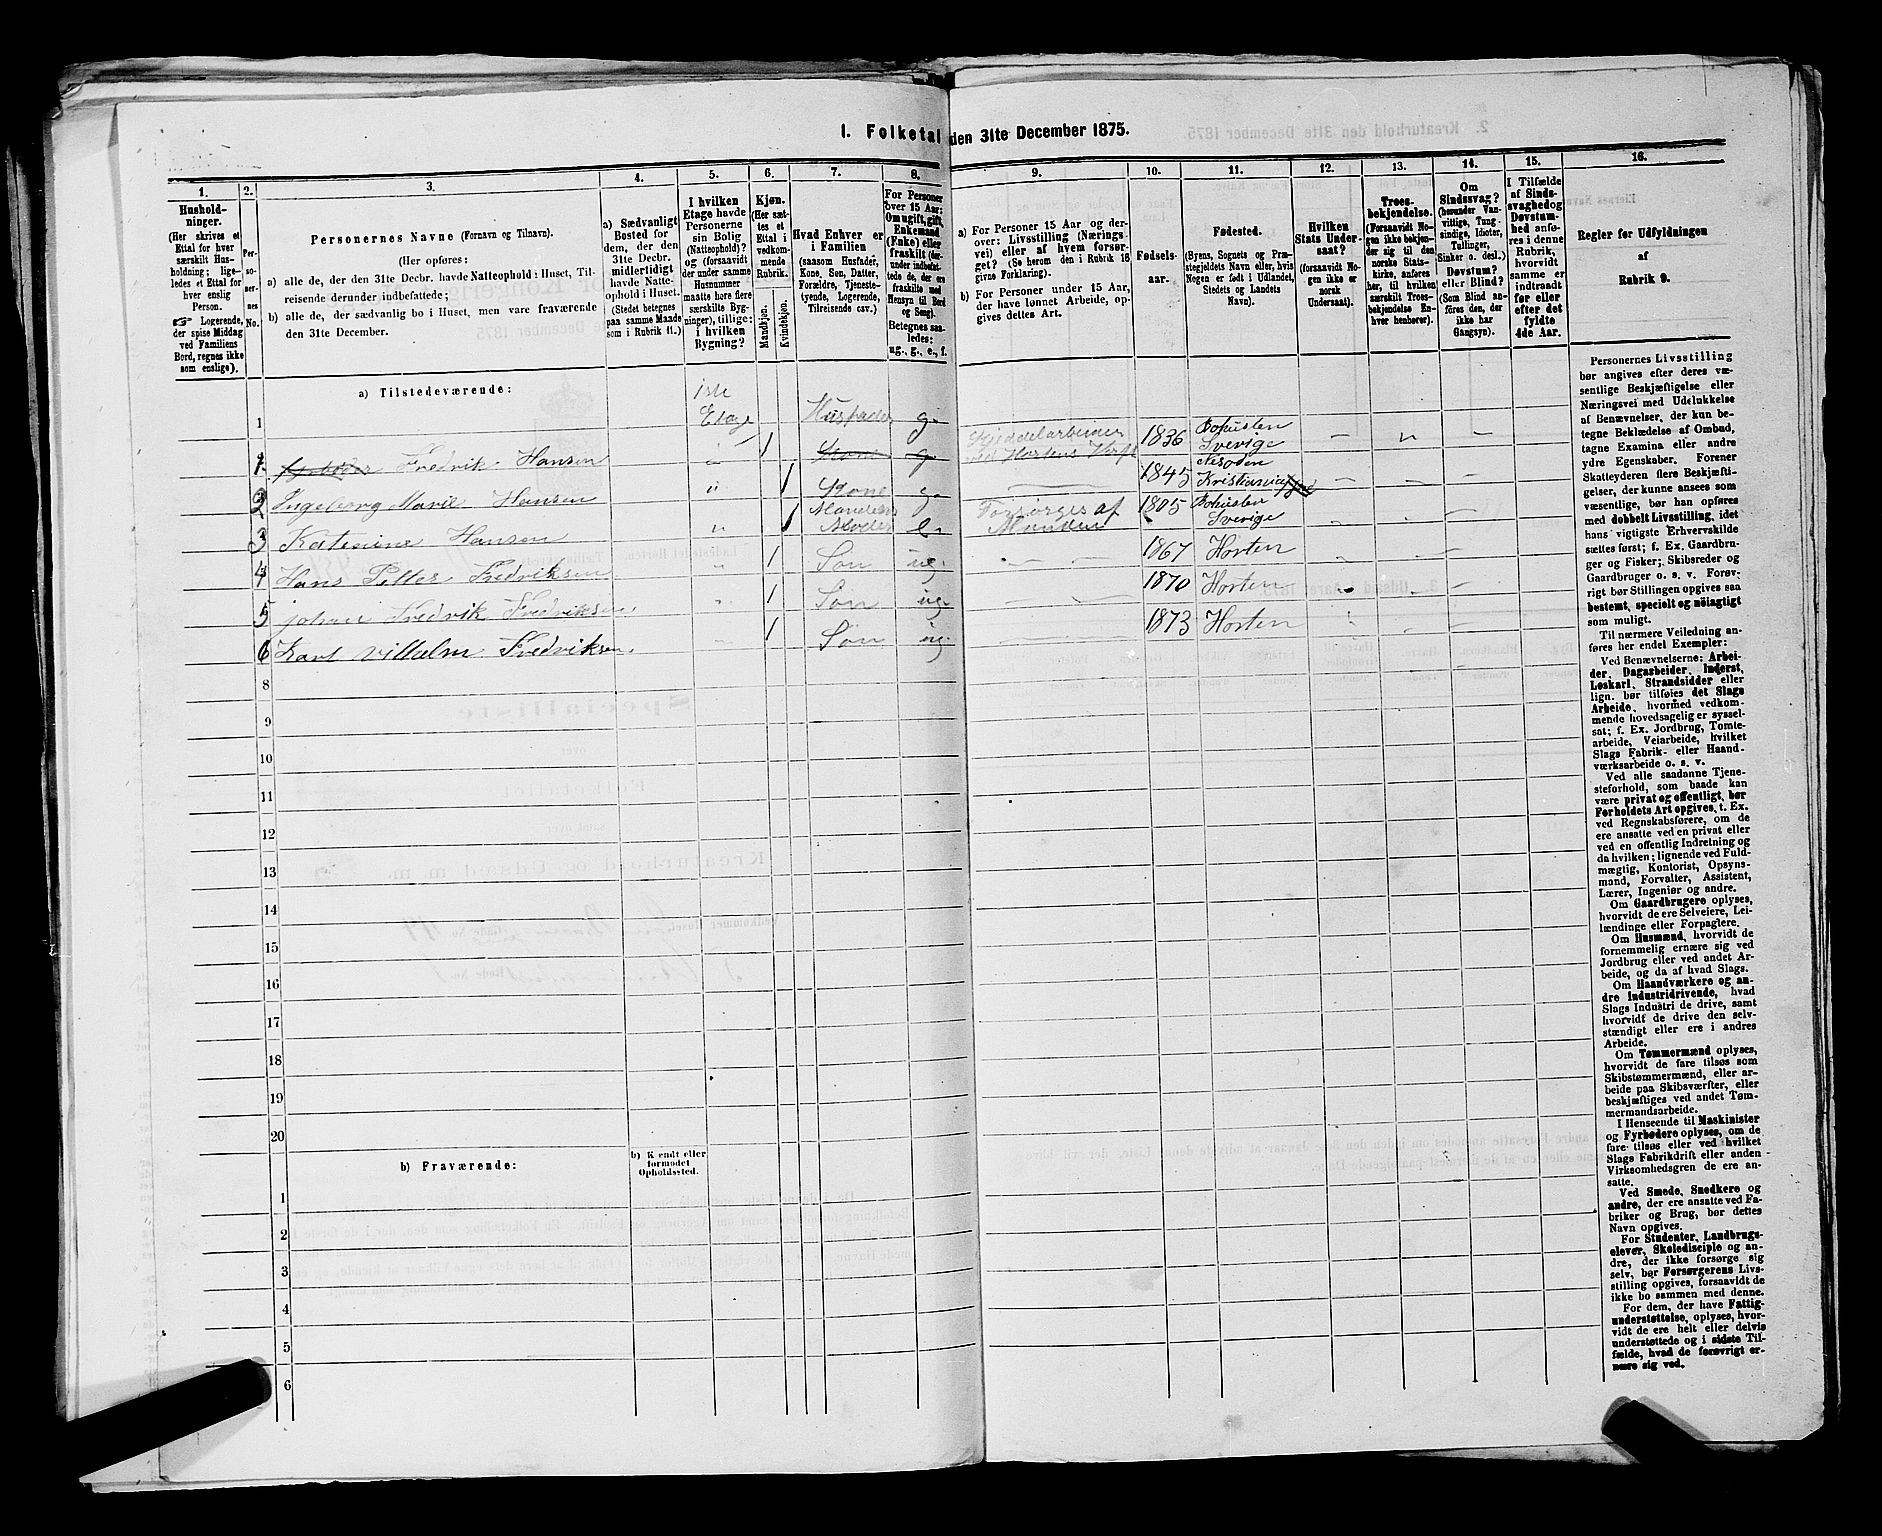 1. Folketal den 31te December 1875.
1.
2.
3.
4.
5.
6.
7.
8.
9.
10.
11.
12.
13.
14.
15.
16.
Hushold-
ninger.
(Her skrives et
Ettal for hver
særskilt Hus-
holdning; lige-
ledes et Ettal for
hver enslig
Person.
☞ Logerende,
der spise Middag
ved Familiens
Bord, regnes ikke
som enslige).
Per-
so-
ner-
nes
No.
Personernes Navne (Fornavn og Tilnavn).
(Her opføres:
a) alle de, der den 31te Decbr. havde Natteophold i Huset, Til-
reisende derunder indbefattede;
b) alle de, der sædvanlig bo i Huset, men vare fraværende
den 31te December.
a) Sædvanligt
Bosted for
dem, der den
31te Decbr.
midlertidigt
havde Natte-
ophold i Huset.
(Stedet betegnes
paa samme Maade
som i Rubrik 11.)
I hvilken
Etage havde
Personerne
sin Bolig
(Natteophold)?
og (forsaavidt
der under samme
Husnummer
maatte høre flere
særskilte Byg-
ninger), tillige:
i hvilken
Bygning?
Kjøn.
(Her sæt-
tes et
Ettal i
vedkom-
mende
Rubrik.
Mandkjøn.
Kvindekjøn.
Hvad Enhver er
i Familien
(saasom Husfader,
Kone, Søn, Datter,
Forældre, Tjeneste-
tyende, Logerende,
Tilreisende cav.)
For Personer
over 15 Aar:
Om ugift, gift,
Enkemand
(Enke) eller
fraskilt (der-
under indbefat-
tede de, der ere
fraskilte med
Hensyn til Bord
og Seng).
Betegnes saa-
ledes:
ug., g., e., f.
a) For Personer 15 Aar og der-
over: Livsstilling (Nærings-
vei) eller af hvem forsør-
get? (Se herom den i Rubrik 16
givne Forklaring).
b) For Personer under 15 Aar,
der have lønnet Arbeide, op-
gives dettes Art.
Fødsels-
aar.
Fødested.
(Byens, Sognets og Præ-
stegjeldets Navn eller, hvis
Nogen er født i Udlandet,
Stedets og Landets
Navn).
Hvilken
Stats Under-
saat?
(forsaavidt No-
gen ikke er
norsk
Undersaat).
Troes-
bekjendelse.
(Forsaavidt No-
gen ikke bekjen-
der sig til den
norske Stats-
kirke, anføres
her, til hvilken
særskilt Troes-
bekjendelse En-
hver henhører).
Om
Sindssvag?
(herunder Van-
vittige, Tung-
sindige, Idioter,
Tullinger,
Sinker o. desl.)
Døvstum?
eller Blind?
(Som Blind an-
føres den, der
ikke har
Gangsyn).
I Tilfælde
af Sinds-
svaghed og
Døvstum-
hed anfø-
res i denne
Rubrik,
hvorvidt
samme er
indtraadt
før eller
efter det
fyldte
4de Aar.
Regler for Udfyldningen
af
Rubrik 9.
a) Tilstedeværende:
1ste
1 Etage Husfader g.
1. Fredrik Hansen " 1 Kone g
Skiddelarbeider
ved Hortens Verft 1836 Bohuslen
Sverige — " —
2 Ingeborg Marie Hansen " 1 Kone g.
1845 Nesoden
Kristianiafjord — — —
3 Katesiene Hansen " 1 Mandens
Moder e.
Forsørges af
Manden 1805 Bohuslen
Sverige — — —
4 Hans Petter Fredriksen " 1 Søn ug. — 1867 Horten
5 johan Fredrik Fredriksen " 1 Søn ug. — 1870 Horten
6 Karl Vilhelm Fredriksen " 1 Søn ug. — 1873 Horten
8
9
10
11
12
13
14
15
16
17
18
19
20
b) Fraværende:
b) Kendt eller
formodet
Opholdssted.
1
2
3
4
5
6
Personernes Livsstilling
bør angives efter deres væ-
sentlige Beskjæftigelse eller
Næringsvei med Udelukkelse
af Benævnelser, der kun be-
tegne Beklædelse af Ombud,
tagne Examina eller andre
ydre Egenskaber. Forener
Skatteyderen flere Beskjæfti-
gelser, der kunne ansees som
væsentlige, bør han opføres
med dobbelt Livsstilling, idet
hans vigtigste Erhvervskilde
sættes først; f. Ex. Gaardbru-
ger og Fisker; Skibsreder og
Gaardbruger o. s. v. Forøv-
rigt bør Stillingen opgives saa
bestemt, specielt og nöiagtigt
som muligt.
Til nærmere Veiledning an-
føres her endel Exempler:
Ved Benævnelserne: Arbei-
der, Dagarbeider, Inderst,
Løskarl, Strandsidder eller
lign. bør tilføies det Slags
Arbeide, hvormed vedkom-
mende hovedsagelig er syssel-
sat; f. Ex. Jordbrug, Tomte-
arbeide, Veiarbeide, hvilket
Slags Fabrik- eller Haand-
værksarbeide o. s. v.
Ved alle saadanne Tjene-
steforhold, som baade kan
være privat og offentligt, bør
Forholdets Art opgives, t. Ex.
ved Regnskabsførere, om de
ere ansatte ved en privat eller
ved en offentlig Indretning og
da hvilken; lignende ved Fuld-
mægtig, Kontorist, Opsyns-
mand, Forvalter, Assistent,
Lærer, Ingeniør og andre.
Om Gaardbrugere oplyses,
hvorvidt de ere Selveiere, Lei-
lændinge eller Forpagtere.
Om Husmænd, hvorvidt de
fornemmelig ernære sig ved
Jordbrug eller ved andet Ar-
beide, og da af hvad Slags.
Om Haandværkere og an-
dre Industridrivende, hvad
Slags Industri de drive, samt
hvorvidt de drive den selv-
stændigt eller ere i andres
Arbeide.
Om Tømmermænd oplyses,
hvorvidt de fare tilsøs som
Skibstømmermænd, eller ar-
beide paa Skibsværfter, eller
beskjæftiges ved andet Tøm-
mermandsarbeide.
I Henseende til Maskinister
og Fyrbødere oplyses, om de
fare tilsøs eller ved hvilket
Slags Fabrikdrift eller anden
Virksomhedsgren de ere an-
satte.
Ved Smede, Snedkere og
andre, der ere ansatte ved Fa-
briker og Brug, bør dettes
Navn opgives.
For Studenter, Landbrugs-
elever, Skoledisciple og an-
dre, der ikke forsørge sig
selv, bør Forsørgerens Livs-
stilling opgives, forsaavidt de
ikke bo sammen med denne.
For dem, der have Fattig-
understøttelse, oplyses, hvor-
vidt de ere helt eller delvis
understøttede og i sidste Til-
fælde, hvad de forøvrigt er-
nære sig ved.